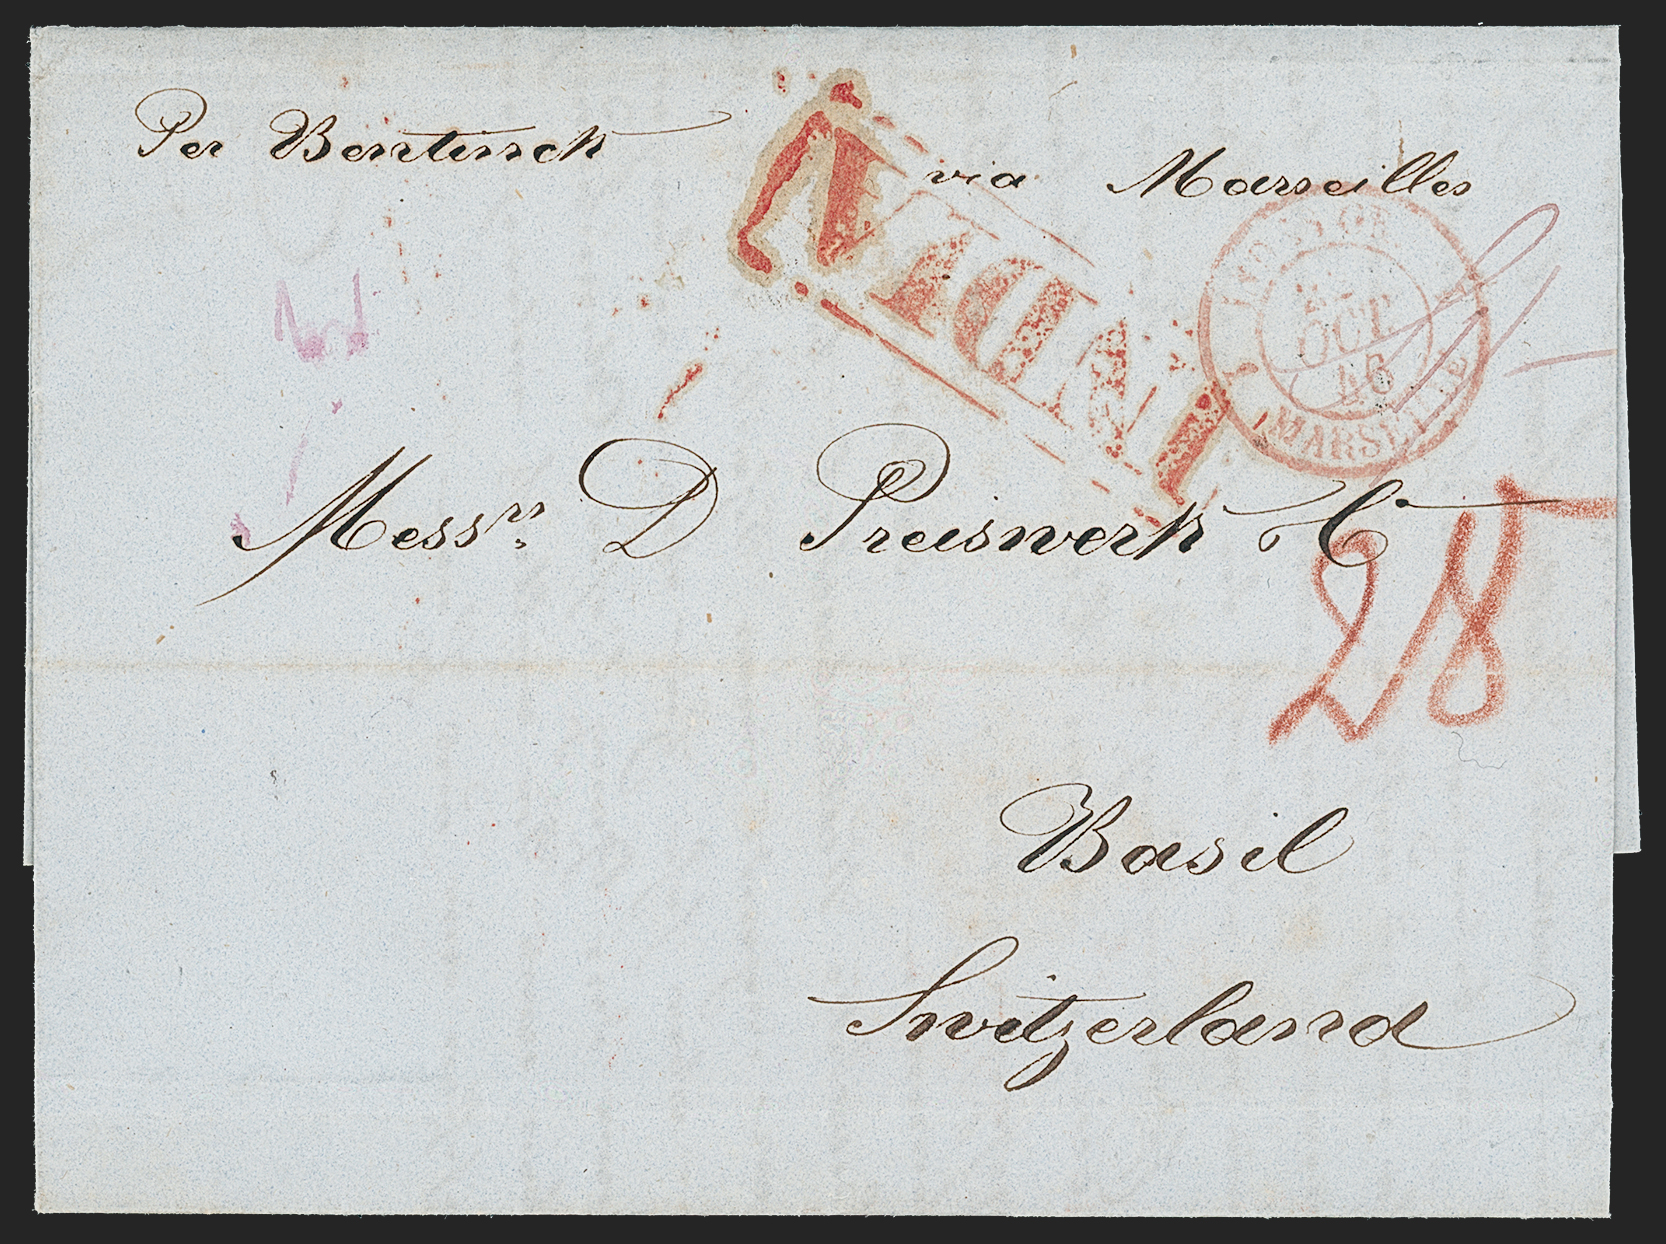 Per Bentinck via Marseilles
INDIA
OCT
46
MARSEILLE
Messrs D Preiswerk & Co
28
Basil
Switzerland